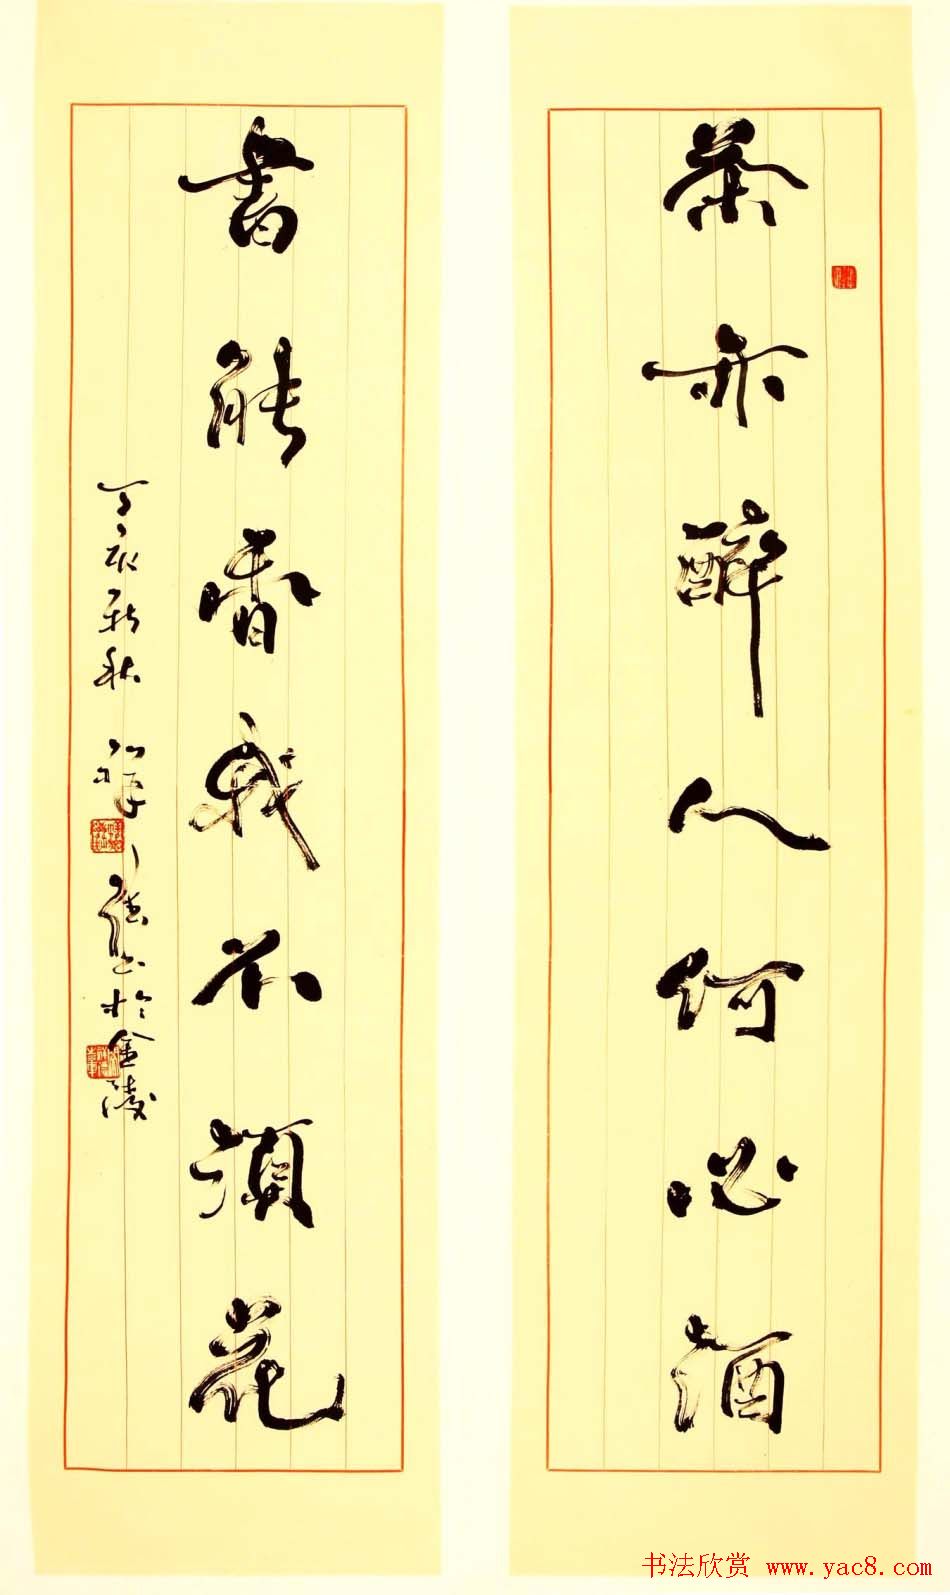 茶亦醉人何必酒
书能香我不须花
丁亥新秋 祥之德书於金陵
书法欣赏 www.yac8.com